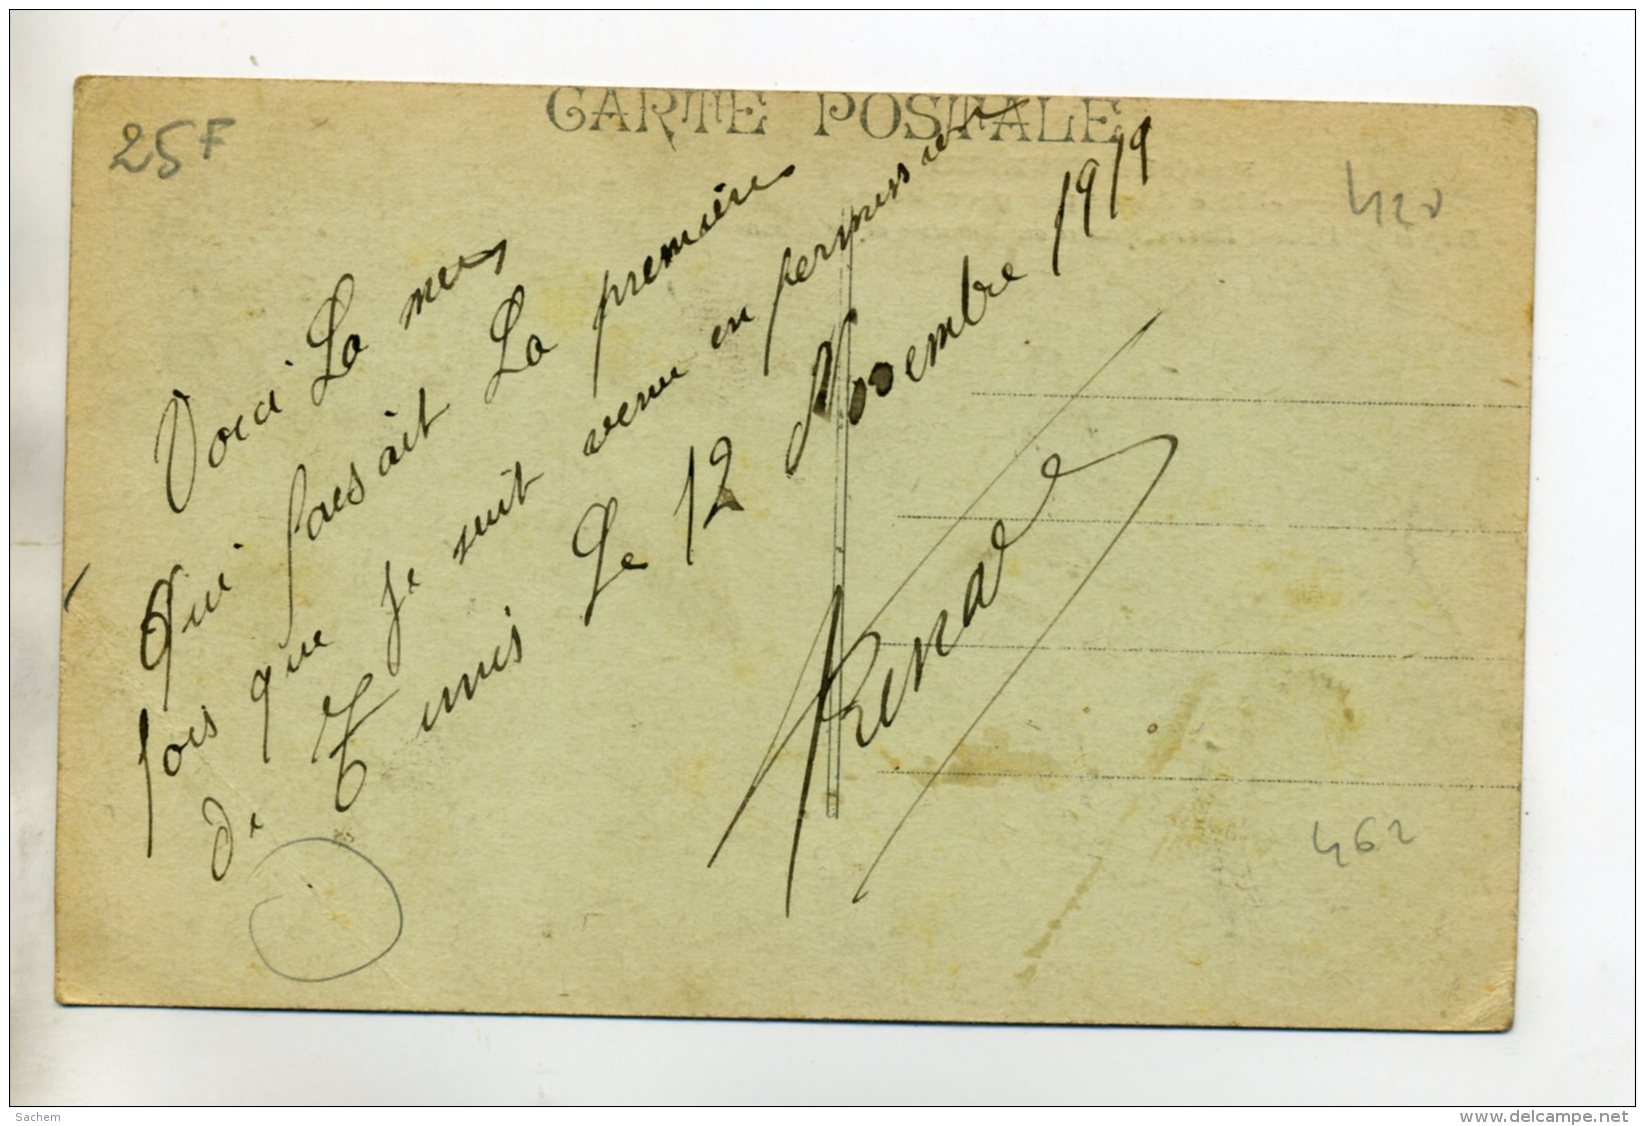 CARTE POSTALE
25F
420
Voici La mer
Qui faisait La première
fois que Je suit venu en permission
de Tunis Le 12 Novembre 1919
Renad
462
Sachem
www.delcampe.net